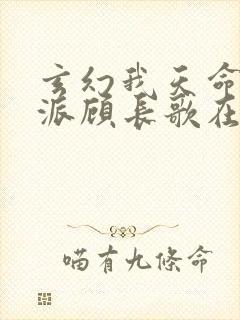 玄幻我天命
派顾长歌在
喵有九條命